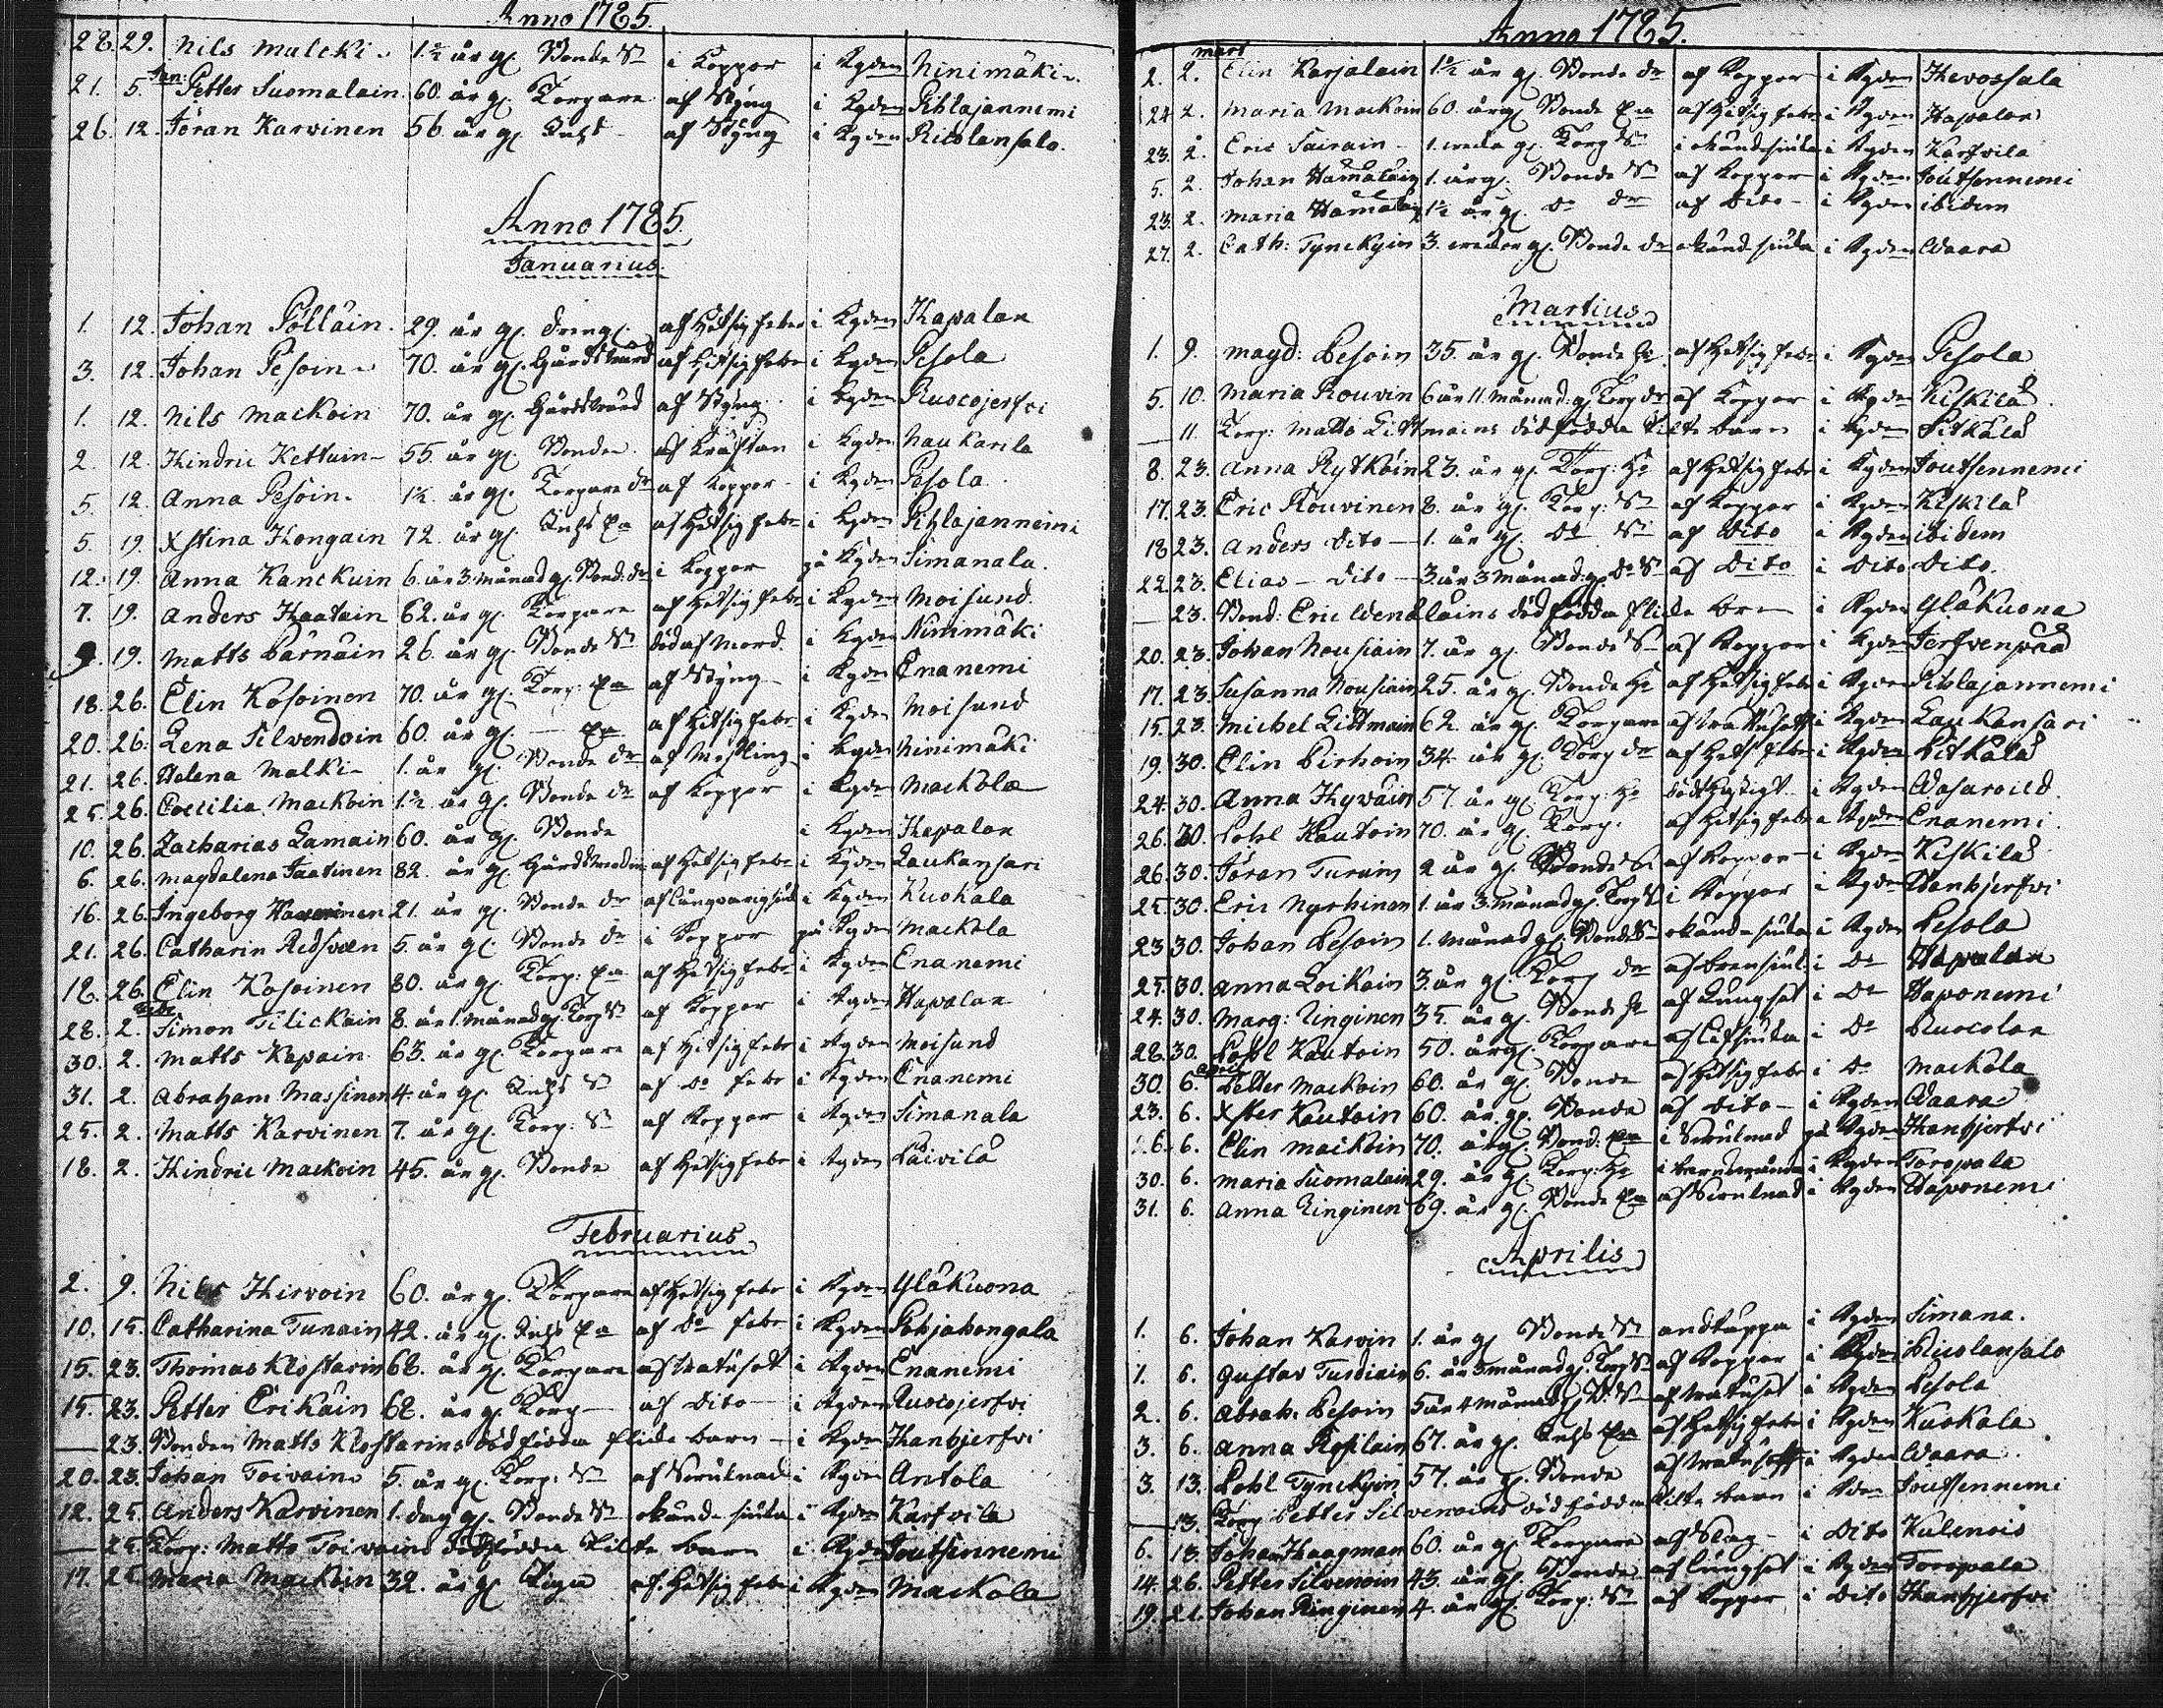 Anno 1785.
28. 29. Nils Mulcki 1½ år gl. Bonde Sn i Koppor i Kyden Ninimäki
21. 5. Jan: Petter Suomalain 60. år gl. Torpare af Styng i Kyden Pihlajannemi
26. 12. Jöran Karvinen 56 år gl. Inhs af Styng i Kyden Ricolansalo.
Anno 1785.
Januarius.
1. 12. Johan Pölläin 29. år gl. dreng af Hetsig feber i Kyden Hapalax
3. 12. Johan Pesoin 70. år gl. Gårdsvärd af Hetsig febr i Kyden Pesola
1. 12. Nils Mackoin 70. år gl. Gårdsvärd af Styng i Kyden Ruocojerfvi
2. 12. Hindric Kettuin 55. år gl. Bonde af Kräftan i Kyden Naukanla
5. 12. Anna Pesoin 1½ år gl. Torpare dr af Koppor i Kyden Pesola
5. 19. Xstina Hongain 72. år gl. Inhs Ea af Hetsig febr i Kyden Pihlajannemi
12. 19. Anna Kanckuin 6. år 3. månad gl. Bond: dr i Koppor på Kyden Simanala.
7. 19. Anders Haatain 62. år gl. Torpare af Hetsig febr i Kyden Moisund
9. 19. Matts Pärnäin 26. år gl. Bonde Sn död af Mord i Kyden Ninimäki
18. 26. Elin Kosoinen 70. år gl. Torp: Ea af Styng i Kyden Enanemi
20. 26. Lena Silvendoin 60. år gl. — Ea af Hitsig febr i Kyden Moisund
21. 26. Helena Malki 1. år gl. Bonde dr af Mässling i Kyden Ninimäki
25. 26. Coecilia Mackoin 1½ år gl. Bonde dr af Koppor i Kyden Mackola
10. 26. Zacharias Lamain 60. år gl. Bonde i Kyden Hapalax
6. 26. Magdalena Jaatinen 82. år gl. af Hetsig febr i Kyden Laukansari
16. 26. Ingeborg Kaverinen 21. år gl. Bonde dr af långvarig siuk i Kyden Kuokala
21. 26. Catharin Redsven 5. år gl. Bonde dr i Koppor på Kyden Mackola
18. 26. Elin Kosoinen 80. år gl. Torp: Ea af Hetsig febr i Kyden Enanemi
28. 2. Febr Simon Tilickain 8. år 1. månad gl. Torp Sn af Koppor i Kyden Hapalax
30. 2. Matts Kapain 63. år gl. Torpare af Hitsig febr i Kyden Moisund
31. 2. Abraham Massinen 4. år gl. Inhs Sn af Do febr i Kyden Enanemi
25. 2. Matts Karvinen 7. år gl. Torp: Sn af Koppor i Kyden Simanala
18. 2. Hindric Mackoin 45. år gl. Bonde af Hetsig febr i Kyden Päivilä
Februarius
2. 9. Nils Hirvoin 60. år gl. Torpare af Hetsig febr i Kyden Yläkuona
10. 15. Catharina Tunain 42. år gl. Inhs Ea af Do febr i Kyden Pohjahongala
15. 23. Thomas Klostarin 68. år gl. Torpare af Watusot i Kyden Enanemi
15. 23. Petter Erikäin 68. år gl. Torp af Dito i Kyden Ruocojerfvi
— 23. Bonden Matts Klostarins dödfödda flicke barn i Kyden Hanhjerfvi
20. 23. Johan Toivain 5. år gl. Torp: Sn af Swulnad i Kyden Antola
12. 25. Anders Karvinen 1. dag gl. Bonde Sn okände siuka i Kyden Karfvila
— 25. Torp: Matts Toivains dödfödda Pilte barn i Kyden Joutsennemi
17. 25. Maria Mackoin 32. år gl. Piga af Hetsig febr i Kyden Mackola
Anno 1785.
2. 2. Mart Elin Karjalain 1½ år gl. Bonde dr af Koppor i Kyden Hevossala
24. 2. Maria Mackoin 60. år gl. Bonde Ea af Hetsig febr i Kyden Hapalax
23. 2. Eric Sairain 1. weeka gl. Torp Sn i okände siuka i Kyden Karfvila
5. 2. Johan Hämäläin 1. år gl. Bonde Sn af Koppor i Kyden Joutsennemi
23. 2. Maria Hämäläin 1½ år gl. Do dr af Dito i Kyden ibidem
27. 2. Cath: Tynckyin 3. weckor gl. Bonde dr okände siuka i Kyden Waara
Martius
1. 9. Magd: Pesoin 35. år gl. Bonde H: af Hetsig febr i Kyden Pesola
5. 10. Maria Rouvin 6 år 11. månad gl. Torp dr af Koppor i Kyden Kiskilä
— 11. Torp: Matts Littmains dödfödda Pilte barn i Kyden Pitkälä
8. 23. Anna Rytköin 23. år gl. Torp: H: af Hetsig febr i Kyden Joutsennemi
17. 23. Eric Rouvinen 8. år gl. Torp: Sn af Koppor i Kyden Kiskilä
18 23. Anders Dito 1. år gl. Do Sn af Dito i Kyden ibidem
22. 23. Elias Dito 3. år 3 månad: gl. Do Sn af Dito i Dito Dito.
— 23. Bond: Eric Wenäläins dödfödda flicke brn i Kyden Yläkuona
20. 23. Johan Nousiain 7. år gl. Bonde Sn af Koppor i Kyden Jerfvenpää
17. 23. Susanna Nousiain 25. år gl. Bonde H: af Hetsig febr i Kyden Pihlajannemi
15. 23. Michel Littmain 62. år gl. Torpare af Wattusott i Kyden Laukansari
19. 30. Elin Pirhoin 34. år gl. Torp dr af Hets: febr i Kyden Pitkälä
24. 30. Anna Hyväin 57. år gl. Torp: H: död hastigt i Kyden
26. 30. Pohl Kautoin 70. år gl. Torp: af Hitsig febr i Kyden Enanemi
26. 30. Jöran Turuin 2 år gl. Bonde Sn af Koppor i Kyden Kiskilä
25. 30. Eric Nyrhinen 1. år 3. månad gl. Torp S i Koppor i Kyden Hanhjerfvi
23 30. Johan Pesoin 1. månad gl. Bonde Sn okände siuka i Kyden Pesola
25. 30. Anna Loikain 3. år gl. Torp dr af i Do Hapalax
24. 30. Marg: Ringinen 35. år gl. Bonde H: af Lungsot i Do Haponemi
28. 30. Pohl Kautoin 50. år gl. Torpare af i Do Ruocolax
30. 6. April Petter Mackoin 60. år gl. Bonde af Hitsig febr i Do Mackola
23. 6. Xster Kautoin 60. år gl. Bonde af Dito i Kyden Waara
26. 6. Elin Mackoin 70. år gl. Bond: Ea i Swulnad på Kyden Hanhjerfvi
30. 6. Maria Suomalain 29. år gl. Torp: H: i barnsnöd i Kyden Toropala
31. 6. Anna Ringinen 69. år gl. Bonde Ea af Swulnad i Kyden Haponemi
Aprilis
1. 6. Johan Karvin 1. år gl. Bonde Sn andtäppa i Kyden Simana.
1. 6. Gustav Tusdiain 6. år 3 månad gl. Torp Sn af Koppor i Kyden Riicolansalo
2. 6. Abrah. Pesoin 5 år 4 månad gl. B. Sn af Watusot i Kyden Pesola
3. 6. Anna Kosilain 67. år gl. Inhs Ea af Hetsig febr i Kyden Kuokala
3. 13. Pohl Tynckyin 57. år gl. Bonde af Watusott i Kyden Waara
— 13. Torp Petter Silvenoins dödfödda Pilte barn i Kden Joutsennemi
6. 13. Johan Haagman 60. år gl. Torpare af Slag i Dito Kulenois
14. 26. Petter Silvenoin 43. år gl. Bonde af Lungsot i Kyden Toropala
19. 21. Johan Ringinen 4. år gl. Torp: Sn af Koppor i Dito Hanhjerfvi